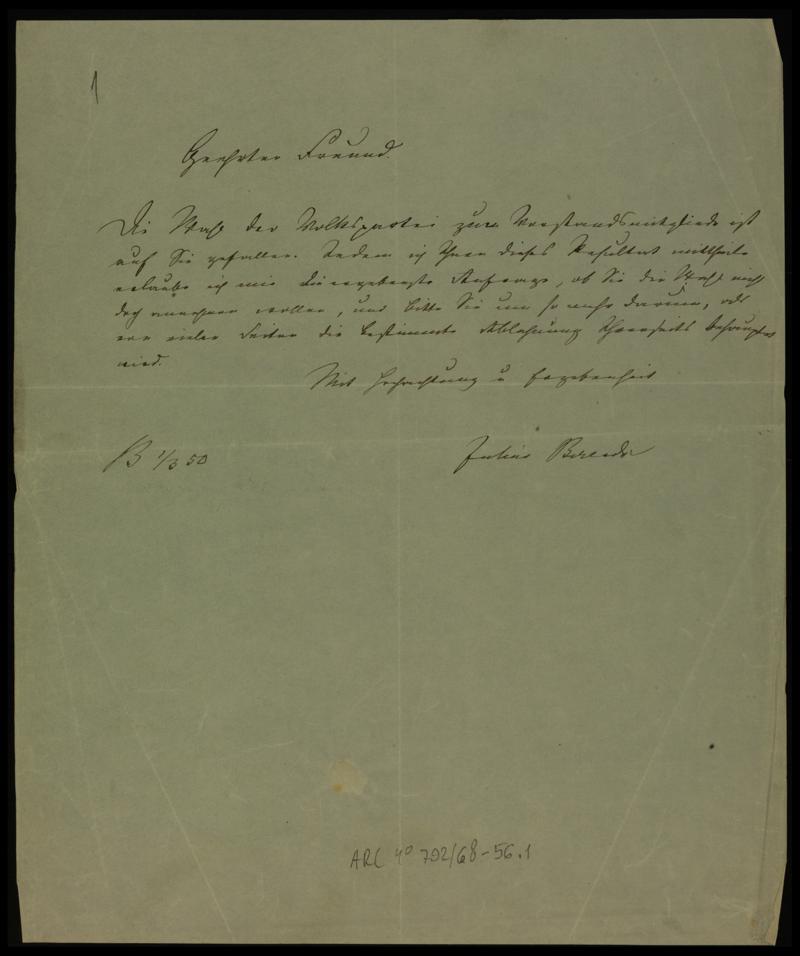 1
Geehrter Freund.
Die Wahl der Volkspartei zum Vorstandsmitgliede ist
auf Sie gefallen. Indem ich Ihnen dieses Resultat mittheile
erlaube ich mir die ergebenste Anfrage, ob Sie die Wahl nicht
doch annehmen wollen, und bitte Sie um so mehr darum, als
von vielen Seiten die bestimmte Ablehnung Ihrerseits behauptet
wird.
Mit Hochachtung u Ergebenheit
B 1/3 50
Julius Berends
ARC 4o 792/68-56.1